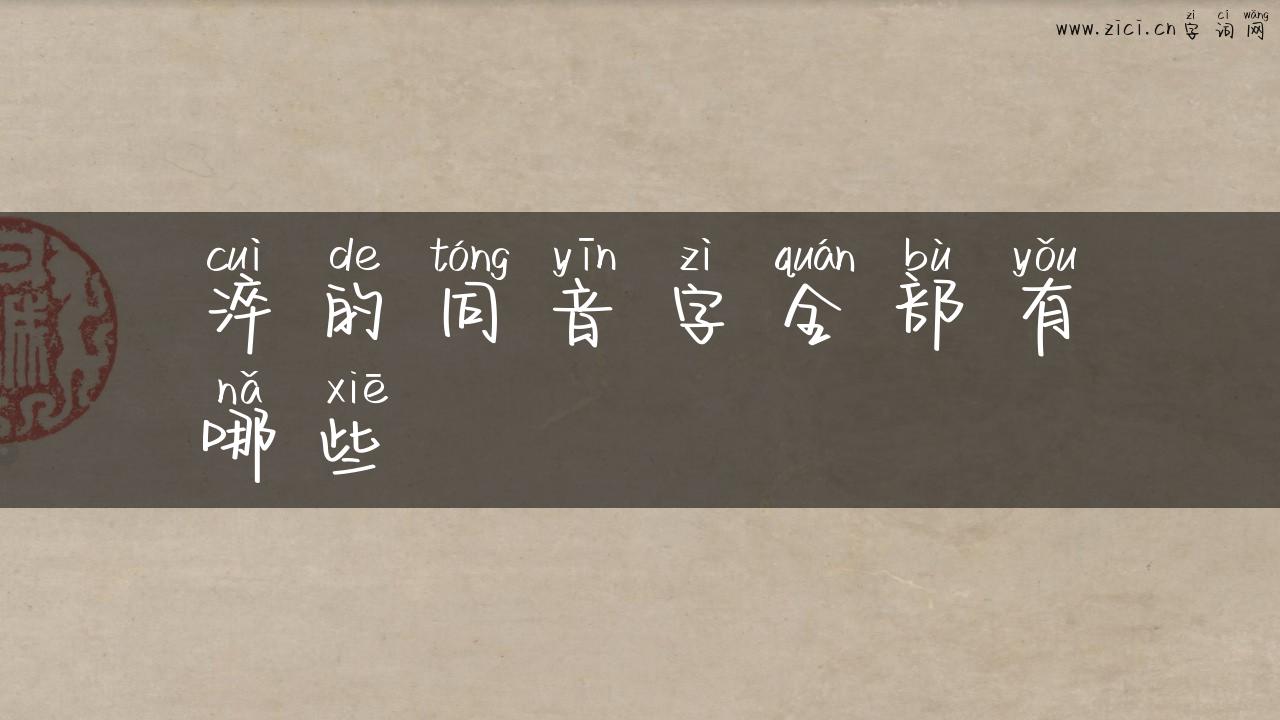 zì cí wǎng
www.zici.cn字词网
cuì de tóng yīn zì quán bù yǒu
淬的同音字全部有
nǎ xiē
哪些